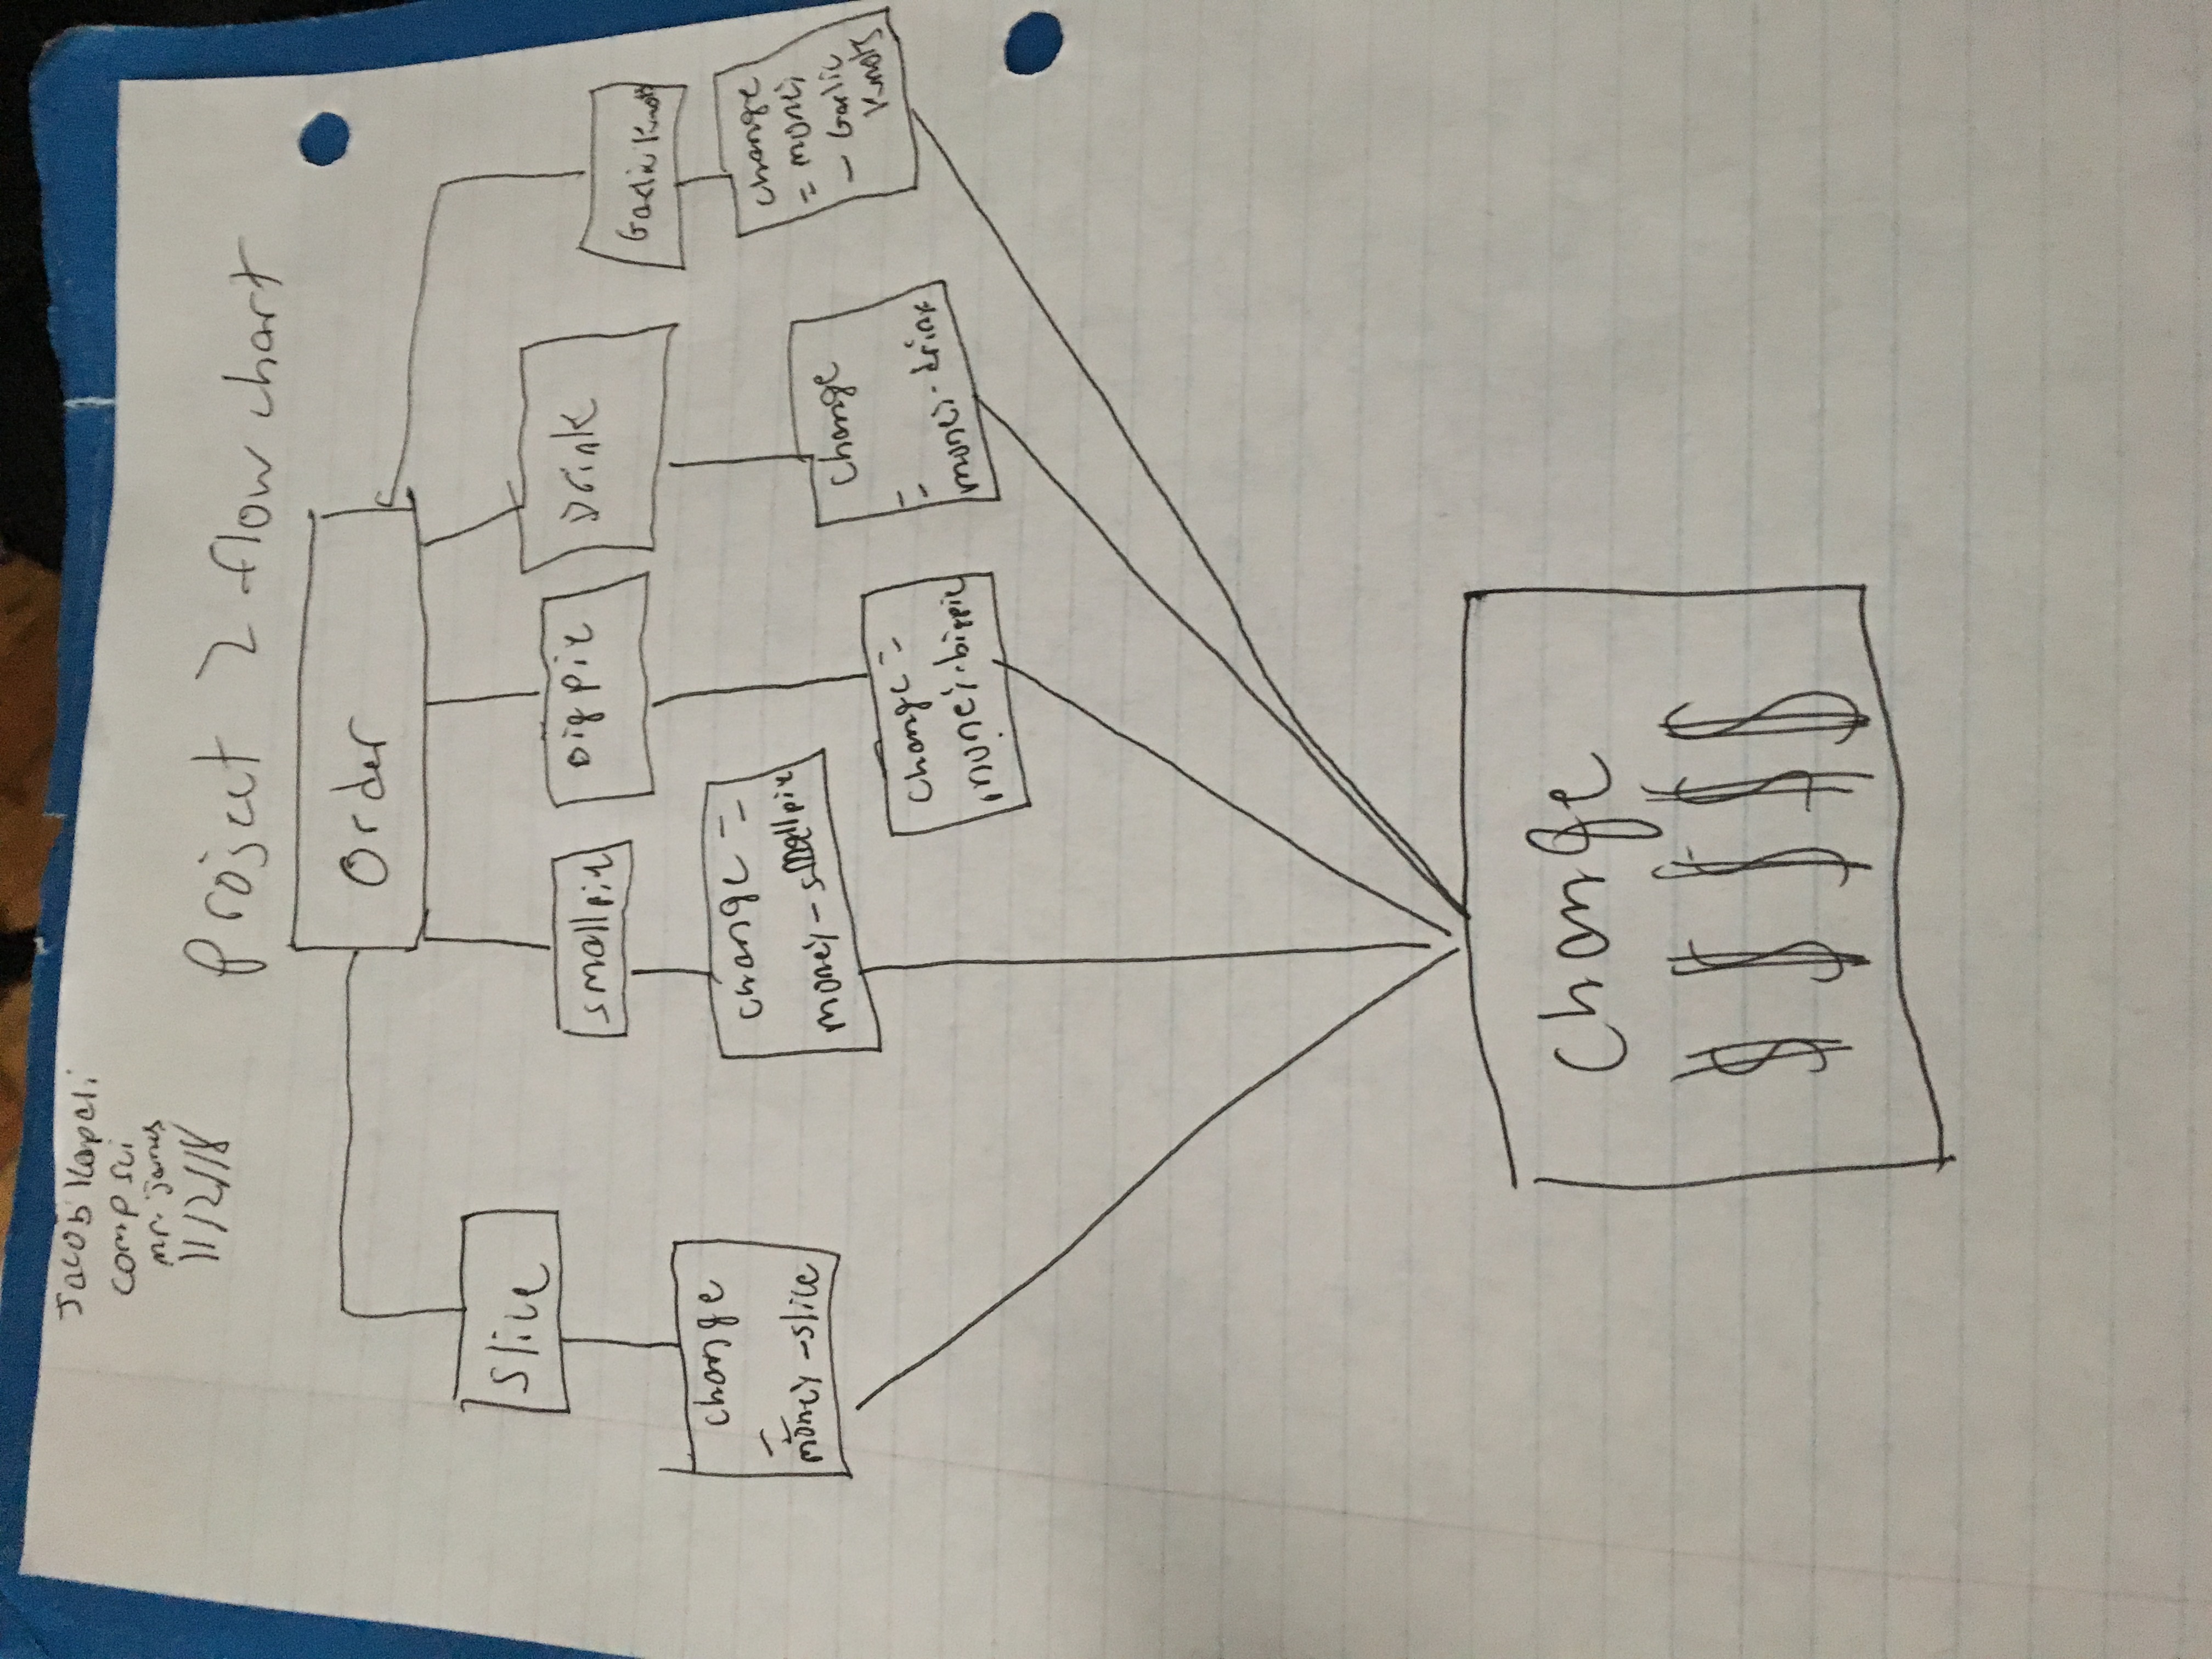 Jacob Kapeli
comp sci
mr. james
11/2/18
Project 2 flow chart
Order
Slice
smallpie
Bigpie
Drink
Garlic Knots
change
=
money-slice
change =
money-smallpie
change =
money-bigpie
change
=
money-drink
change
= money
- Garlic
Knots
change
$ $ $ $ $